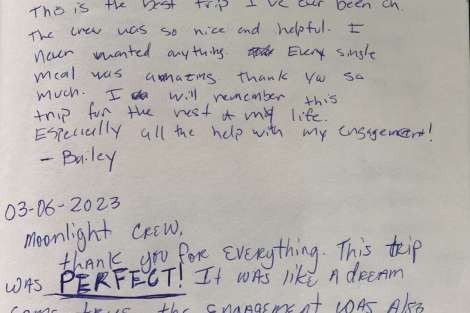 This is the best trip I've ever been on.
The crew was so nice and helpful. I
never wanted anything. Every single
meal was amazing thank you so
much. I will remember this
trip for the rest of my life.
Especially all the help with my engagement!
- Bailey
03-06-2023
Moonlight Crew,
thank you for everything. This trip
was PERFECT! It was like a dream
come true, the engagement was also